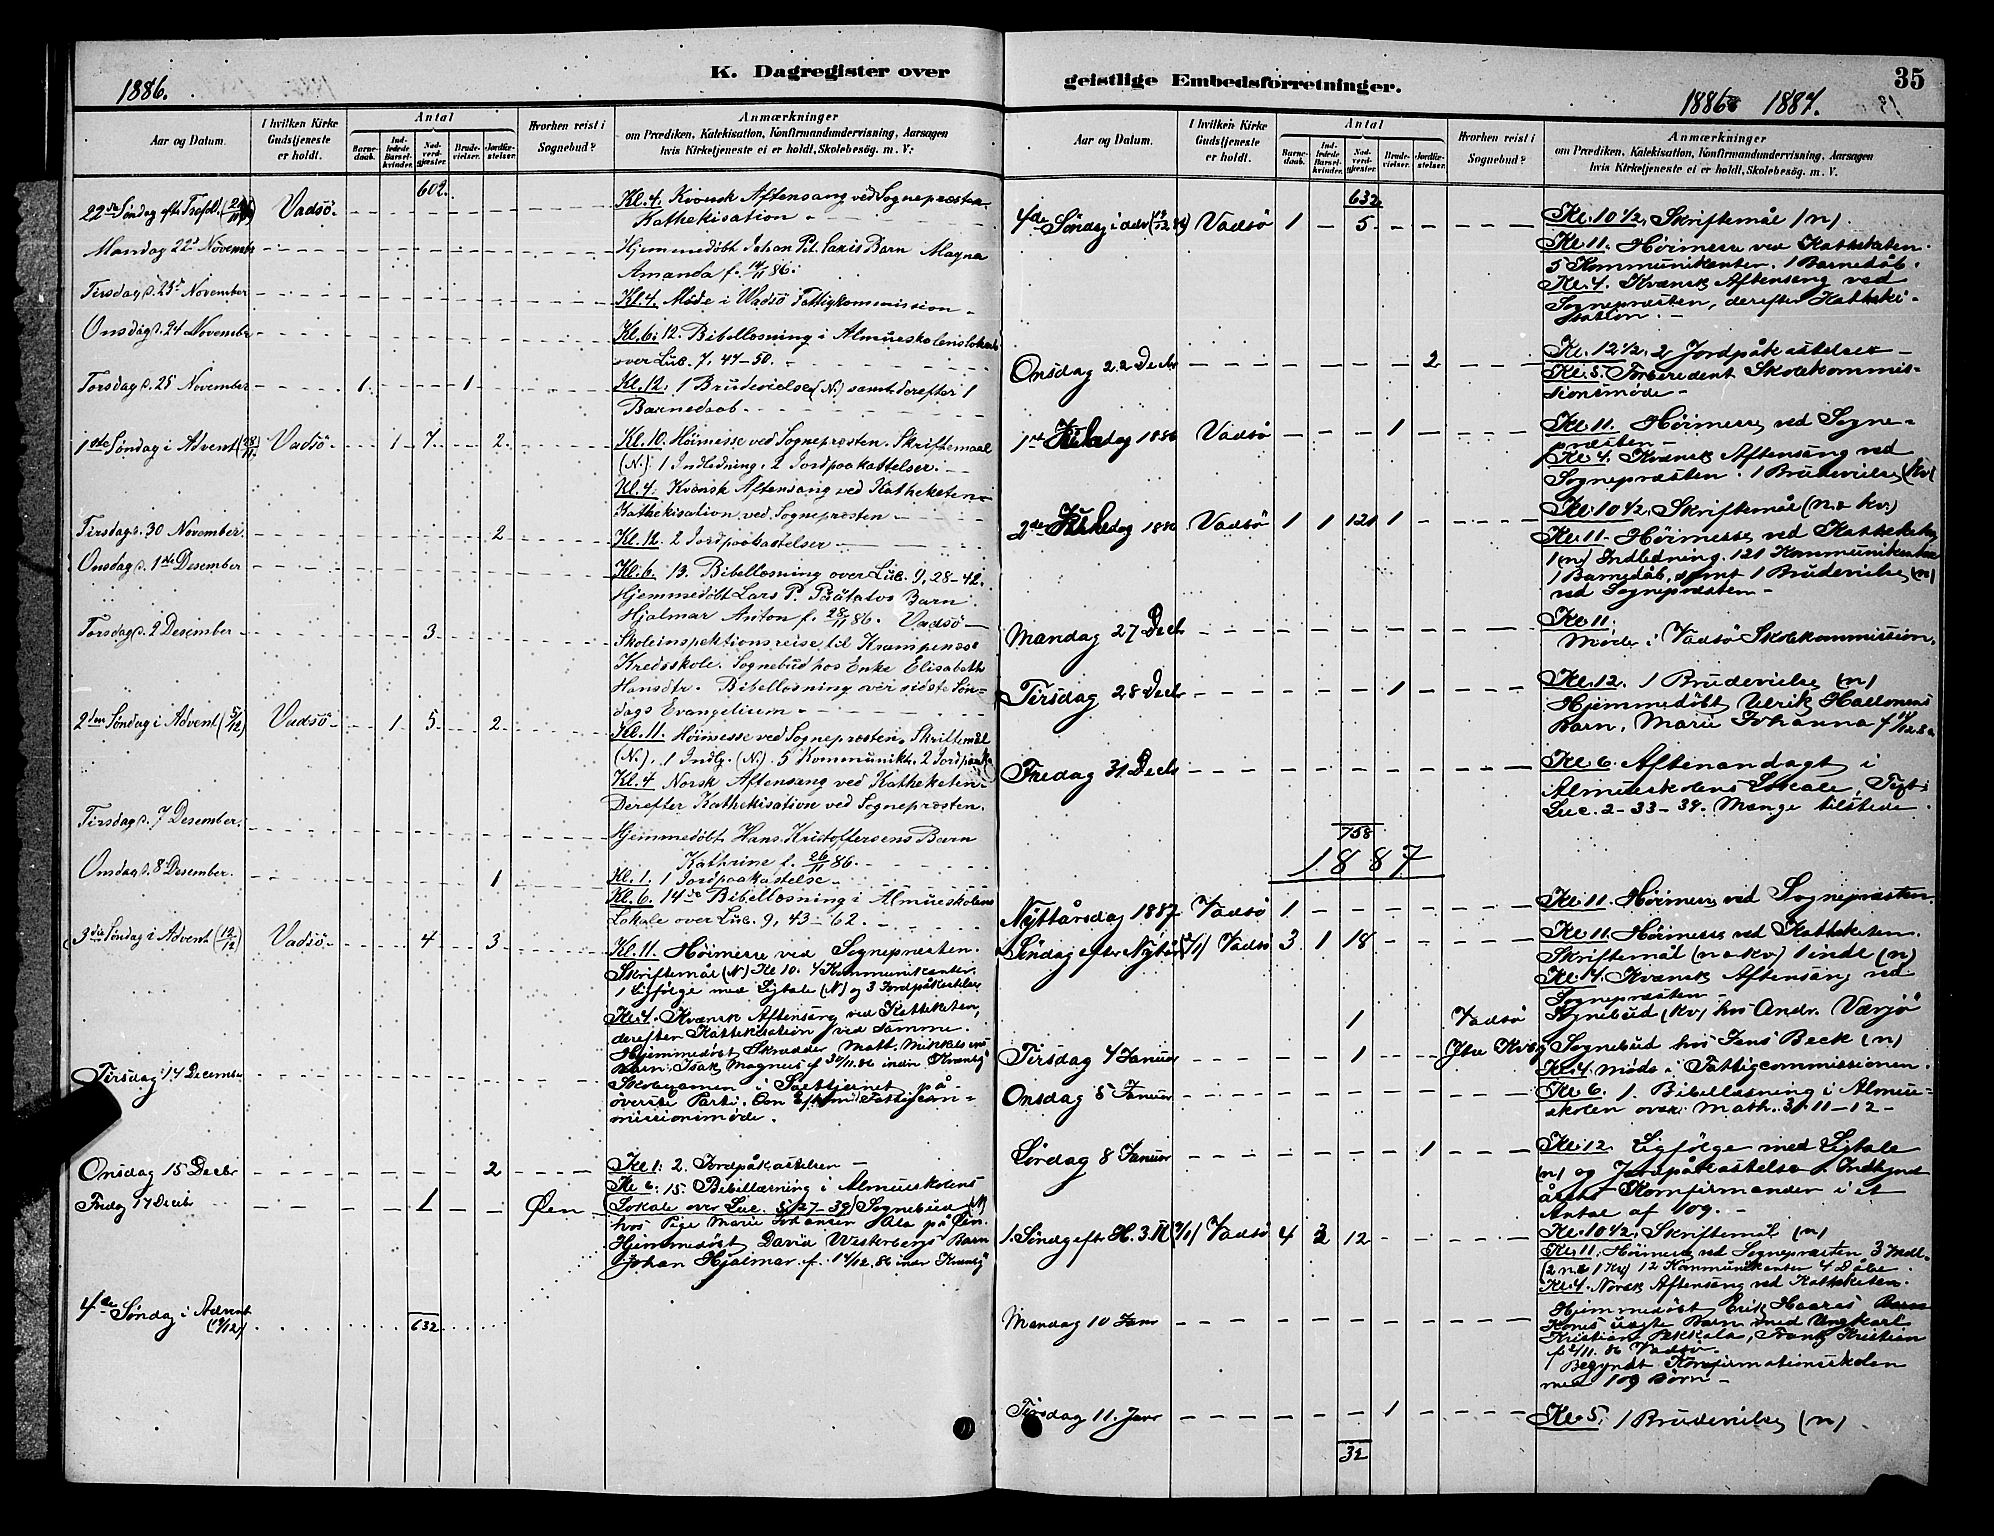 1886.
K. Dagregister over
Aar og Datum.
I hvilken Kirke Gudstjeneste er holdt.
Antal
Barnedaab.
Indledede Barselkvinder.
Nadverdgjæster.
Brudevielser.
Jordfæstelser.
Hvorhen reist i Sognebud?
Anmærkninger
om Prædiken, Katekisation, Konfirmandundervisning, Aarsagen
hvis Kirketjeneste ei er holdt, Skolebesøg. m. V:
602.
22de Søndag eft. Trefd. Vadsö - Kl. 4. Kvensk Aftensang ved Sognepræsten
Kathekisation
Mandag 22d November Hjemmedøbt Johan Pet. Saris Barn Magna
Amanda f. 14/11 86.
Tirsdag d. 23d November Kl. 4. Møde i Wadsö Fattigkommission
Onsdag d. 24 November Kl. 6: 12. Bibellæsning i Almueskolens Lokale
over Luk. 7, 47-50.
Torsdag d. 25 November 1. 1 Kl. 12. 1 Brudevielse (N.) samt derefter 1
Barnedaab.
1ste Søndag i Advent (28/11) Vadsö - 1 7. 2. Kl. 10. Høimesse ved Sognepræsten. Skriftemaal
(N.): 1 Indledning. 2 Jordpaakastelser.
Kl. 4. Kvænsk Aftensang ved Katheketen
Kathekisation ved Sognepræsten
Tirsdag d. 30 November. 2 Kl. 12. 2 Jordpaakastelser
Onsdag d. 1ste Desember Kl. 6. 13. Bibellæsning over Luk. 9, 28-42.
Hjemmedøbt Lars P. Barn
Hjalmar Anton f. 28/11 86. Vadsö
Torsdag d. 2 Desember 3. Skoleinspektionsreise til Krampenæs
Kredsskole. Sognebud hos Enke Elisabeth
Hansdtr. Bibellæsning over sidste Søn-
dags Evangelium.
2den Søndag i Advent (5/12) Vadsö - 1 5. 2. Kl. 11. Høimesse ved Sognepræsten. Skriftemål
(N.). 1 Indlg. (N.). 5 Kommunikt. 2 Jordpaak.
Kl. 4 Norsk Aftensang ved Katheketen
Derefter Kathekisation ved Sognepræsten.
Tirsdag d. 7 Desember. Hjemmedøbt Hans Kristoffersens Barn
Kathrine f. 26/11 86.
Onsdag d. 8 Desember. 1 Kl. 1. 1 Jordpaakastelse
Kl. 6. 14de Bibellæsning i Almueskolens
Lokale over Luk. 9, 43-62
3die Søndag i Advent (12/12) Vadsö - 4 3. Kl. 11. Høimesse ved Sognepræsten.
Skriftemål (N) Kl 10. 4 Kommunikanter
1 Ligfølge med Ligtale (N) og 3 Jordpåkastelser
Kl. 4. Kvænsk Aftensang ved Katteketen,
derefter Kattekisation ved samme.
Tirsdag 14 December Hjemmedøbt Skrædder Matt. Mikkelsens
Barn: Isak Magnus f. /11.86 inden Kvænby
Skolexamen i på
överste Parti. Om Efterm. Fattigcom-
missionsmøde.
Onsdag 15 Decbr 2 Kl. 1. 2. Jordpåkastelser
Kl. 6. 15. Bibellæsning i Almueskolens
Lokale over Luc. 5, 27-39
Fredag 17 Decbr 1 Øen Sognebud (N)
hos Pige Marie Johansen Ala på Øen.
Hjemmedøbt David Westerbergs Barn
Johan Hjalmar f. 14/12.86 indre Kvænby
4de Søndag i Advent
(19/12) 632
geistlige Embedsforretninger.
35
1886 1887.
Aar og Datum.
I hvilken Kirke Gudstjeneste er holdt.
Antal
Barnedaab.
Indledede Barselkvinder.
Nadverdgjæster.
Brudevielser.
Jordfæstelser.
Hvorhen reist i Sognebud?
Anmærkninger
om Prædiken, Katekisation, Konfirmandundervisning, Aarsagen
hvis Kirketjeneste ei er holdt, Skolebesøg. m. V.
632
4de Søndag i Adv (19/12 86) Vadsö 1 - 5 Kl. 10 1/2. Skriftemål (n).
Kl. 11. Høimesse ved Katteketen.
5 Kommunikanter. 1 Barnedåb.
Kl. 4. Kvænsk Aftensang ved
Sognepræsten, derefter Katteki-
sation.
Onsdag 22 Decbr 2 Kl. 12 1/2. 2 Jordpåkastelser
Kl. 5. Forberedent Skolekommis-
sionsmøde
1ste Juledag 1886 Vadsö 1 Kl. 11. Høimesse ved Sogne-
præsten
Kl. 4. Kvænsk Aftensang ved
Sognepræsten. 1 Brudevielse (Kv)
2den Juledag 1886 Vadsö 1 1 121 1 Kl. 10 1/2. Skriftemål (n & kv.)
Kl. 11. Høimesse ved Katteketen
1 (n) Indledning. 121 Kommunikanter
1 Barnedåb, samt 1 Brudevielse (n)
ved Sognepræsten
Mandag 27 Decbr Kl. 11.
Møde i Vadsö Skolekommission.
Tirsdag 28 Decbr 1 Kl. 12. 1 Brudevielse (n)
Hjemmedøbt Ulrik Hallonens
Barn, Marie Johanna f.
Fredag 31 Decbr Kl. 6. Aftenandagt i
Almueskolens Lokale, Text:
Luc. 2-33-39. Mange tilstede.
758
1887
Nyttårsdag 1887 Vadsö 1 Kl. 11. Høimesse ved Sognepræsten.
Søndag efter Nytår (2/1) Vadsö 3 1 18 Kl. 11. Høimesse ved Katteketen.
Skriftemål (n & kv) 1 indl (n)
Kl. 4. Kvænsk Aftensang ved
Sognepræsten
1 Vadsö Sognebud (kv) hos Andr. Værjö
Tirsdag 4 Januar 1 Ytre Kvby Sognebud hos Jens Beck (n)
Kl. 4. Møde i Fattigcommissionen.
Onsdag 5 Januar Kl. 6. 1. Bibellæsning i Almue-
skolen over Math. 3, 11-12
Lørdag 8 Januar 1 Kl. 12 Ligfølge med Ligtale
(n) og Jordpåkastelse. Indtegnet
årets Konfirmander i et
Antal af 109.
1. Søndg eft. H. 3. K (9/1) Vadsö 4 3 12 Kl. 10 1/2. Skriftemål (n)
Kl. 11. Høimesse ved Sognepræsten 3 Indl.
(2 n & 1 Kv) 12 Kommunikanter 4 Dåbe.
Kl. 4. Norsk Aftensang ved Katteketen.
Mandag 10 Janr Hjemmedøbt Erik Haares
Kones uægte Barn med Ungkarl
Kristian Pekkala, Frantz Kristian
f. 2/11. 86 Vadsö.
Begyndt Konfirmationsskolen
med 109 Børn
Tirsdag 11. Janr 1 Kl. 5. 1 Brudevielse (n)
32